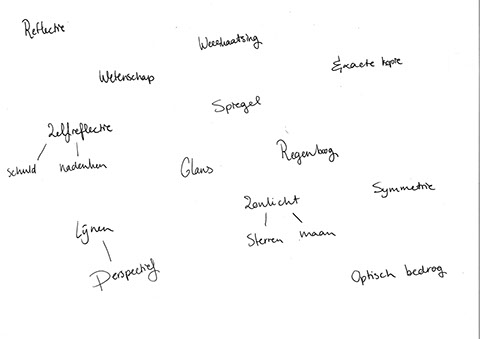 Reflectie
Weerkaatsing
Exacte kopie
Wetenschap
Spiegel
Zelfreflectie
schuld
nadenken
Glans
Regenboog
Symmetrie
Zonlicht
Sterren
maan
Lijnen
Perspectief
Optisch bedrog